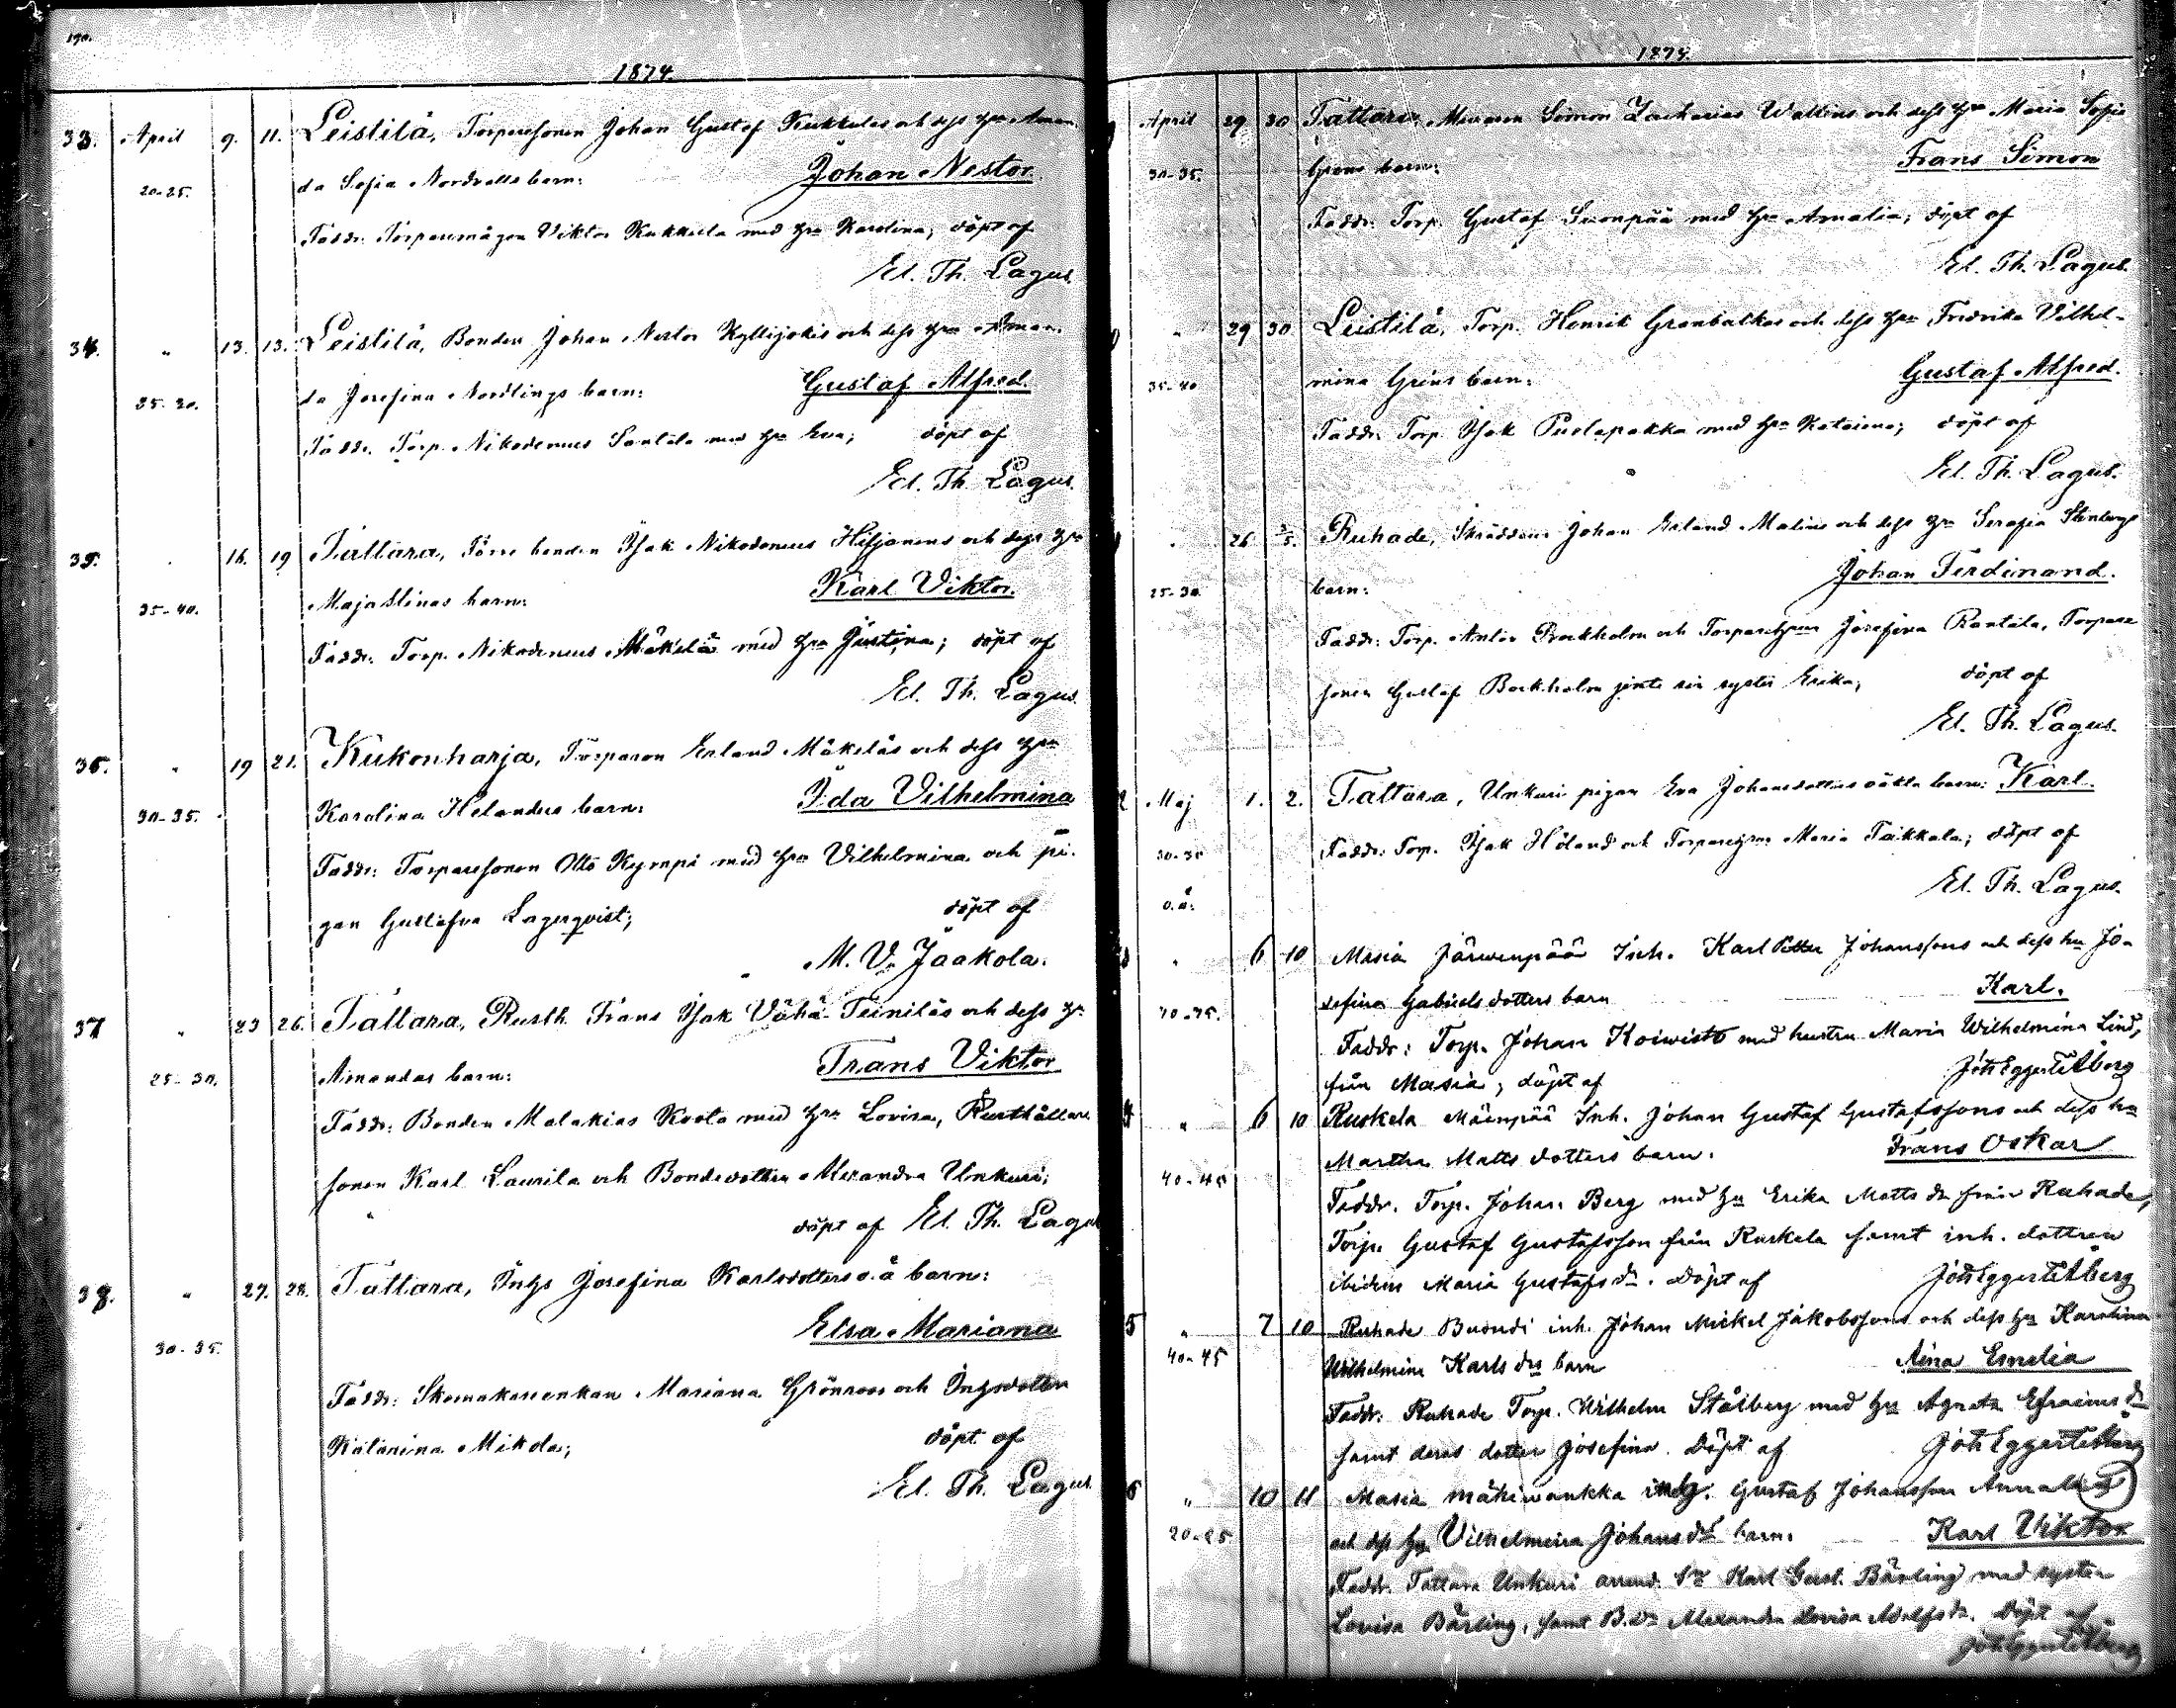 190.
1874.
33. April 9. 11. Leistilä, Torparesonen Johan Gustaf Kukkulas och dess hu Aman-
20-25. da Sofia Nordvalls barn: Johan Nestor.
Faddr. Torparemågen Viktor Kukkula med hu Karolina; döpt af
El. Th. Lagus.
34. " 13. 13. Leistilä, Bonden Johan Nestor Kyllijokis och dess hu Aman-
25-30. da Josefina Nordlings barn: Gustaf Alfred.
Faddr. Torp. Nikodemus Santala med hu Eva; döpt af
El. Th. Lagus.
35. " 16. 19 Tattara, Förre bonden Isak Nikodemus Hiljanens och dess hu
35-40. Maja Stinas barn: Karl Viktor.
Faddr. Torp. Nikodemus Mäkelä med hu Justina; döpt af
El. Th. Lagus.
36. " 19 21. Kukonharja, Torparen Erland Mäkeläs och dess hu
30-35. Karolina Helanders barn: Ida Vilhelmina
Faddr: Torparesonen Otto Kympi med hu Vilhelmina och pi-
gan Gustafva Lagerqvist; döpt af
M. V. Jaakola.
37 " 23 26. Tattara, Rusth. Frans Isak Vähä-Teiniläs och dess hu
25-30. Amandas barn: Frans Viktor
Faddr. Bonden Malakias Knola med hu Lovisa, Rusthållare
sonen Karl Laurila och Bondedottern Alexandra Unkuri;
döpt af El. Th. Lagus
38. " 27. 28. Tattara, Inhys Josefina Karlsdotters o.ä barn:
30-35. Elsa Mariana
Faddr: Skomakareenkan Mariana Grönroos och Inhysdottern
Katarina Mikola; döpt af
El. Th. Lagus.
1874.
April 29 30 Tattara, Muraren Simon Zacharias Wallins och dess hu Maria Sofia
30-35. Gröns barn: Frans Simon
Faddr. Torp. Gustaf Suonpää med hu Amalia; döpt af
El. Th. Lagus.
" 29 30 Leistilä, Torp. Henrik Granbackas och dess hu Fredrika Vilhel-
35-40 mina Grens barn: Gustaf Alfred.
Faddr. Torp. Isak Puolapakka med hu Katarina; döpt af
El. Th. Lagus.
" 26 2/5. Ruhade, Skräddaren Johan Erland Malins och dess hu Serafia Stenbergs
25-30. barn: Johan Ferdinand.
Faddr: Torp. Anton Brockholm och Torparehustrun Josefina Rantala, Torpare
sonen Gustaf Bockholm jemte sin syster Erika; döpt af
El. Th. Lagus.
2 Maj 1. 2. Tattara, Unkuri pigan Eva Johansdotters oäkta barn: Karl.
30-35 Faddr: Torp. Isak Höland och Torparehustrun Maria Taikkala; döpt af
o.ä. El. Th. Lagus.
3 " 6 10 Masia Järvenpää Inh. Karl Petter Johanssons och dess hu Jo-
sefina Gabriels dotters barn Karl.
Faddr: Torp. Johan Koiwisto med hustru Maria Wilhelmina Lind,
från Masia; döpt af Joh Eggert Elberg
4 " 6 10 Ruskela Mäenpää Inh. Johan Gustaf Gustafssons och dess hu
40-45 Martha Matts dotters barn. Frans Oskar
Faddr. Torp. Johan Berg med hu Erika Matts dr från Ruhade,
Torp. Gustaf Gustafsson från Ruskela samt inh. dottren
ibidem Maria Gustafs dr. Döpt af Joh Eggert Elberg
5 " 7 10 Ruhade Buondi inh. Johan Mickel Jakobssons och dess hu Karolina
40-45 Wilhelmina Karls drs barn Aina Emelia
Faddr: Ruhade Torp. Wilhelm Stålberg med hu Agneta Efraims dr
samt deras dotter Josefina. Döpt af Joh Eggert Elberg
6 " 10 11 Masia Gustaf Johansson
20-25 och dess hu Vilhelmina Johans dr barn. Karl Viktor
Faddr. Tattara Unkuri arrend. Karl Gust. Bärling med syster
Lovisa Bärling, samt B.dr Alexandra Lovisa Adolfs dr. Döpt af
Joh Eggert Elberg